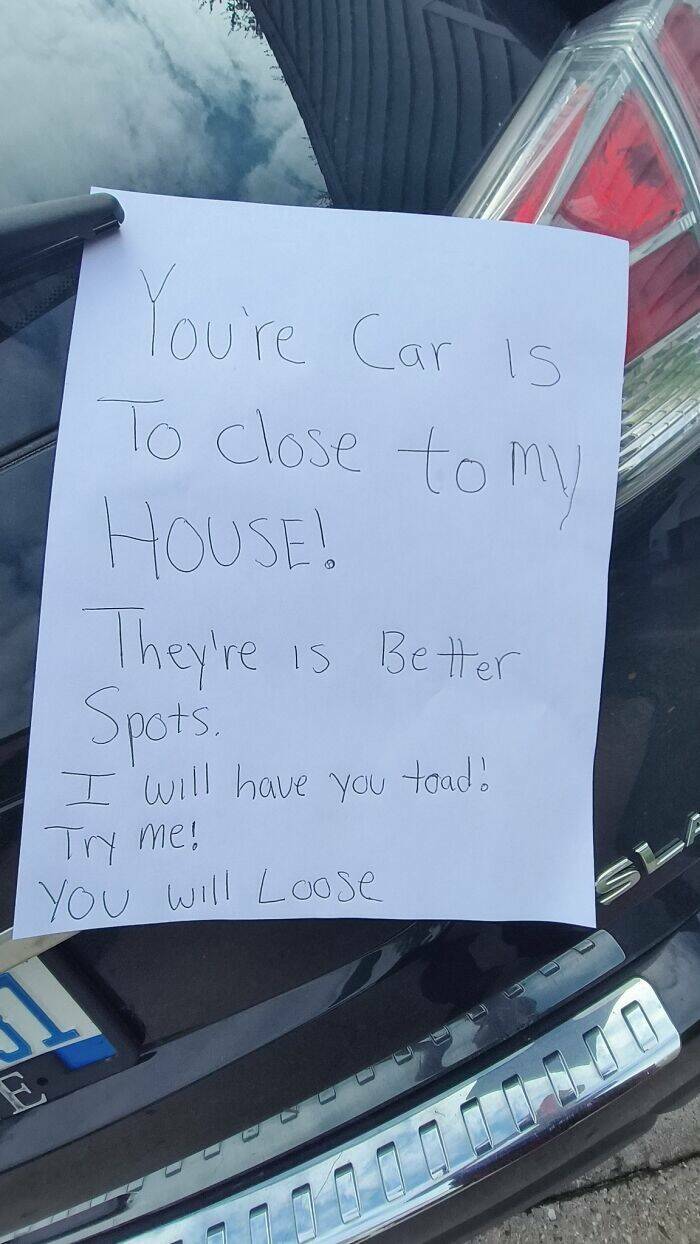 You're Car is
To close to my
HOUSE!
They're is Better
Spots.
I will have you toad!
Try me!
YOU will Loose
SLA
31
E